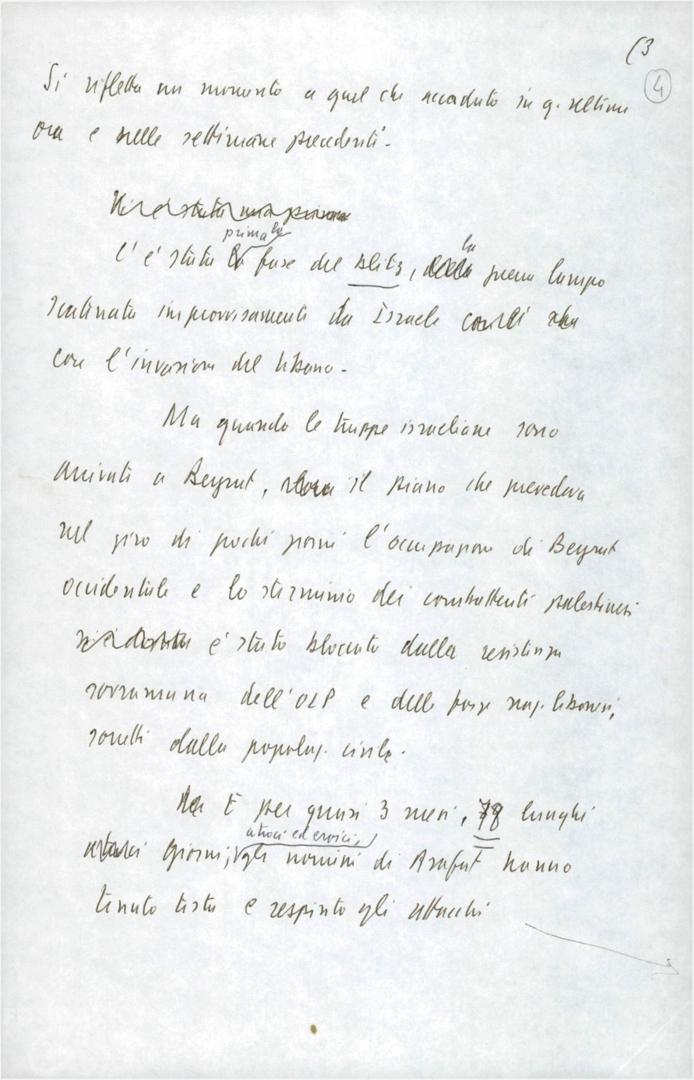 (3
4
Si rifletta un momento a quel che accaduto in q. ultime
ora e nelle settimane precedenti.
prima la
la
C'è stata fase del blitz, guerra lampo
scatinata improvvisamente da Israele
con l'invasione del Libano.
Ma quando le truppe israeliane sono
arrivati a Beyrut, il piano che prevedeva
nel giro di pochi giorni l'occupazione di Beyrut
occidentale e lo sterminio dei combattenti palestinesi
è stato bloccato dalla resistenza
sovrumana dell'OLP e delle forze naz. libanesi,
sorretti dalla popolaz. civile.
E per quasi 3 mesi, 78 lunghi
atroci ed eroici,
giorni, gli uomini di Arafat hanno
tenuto testa e respinto gli attacchi